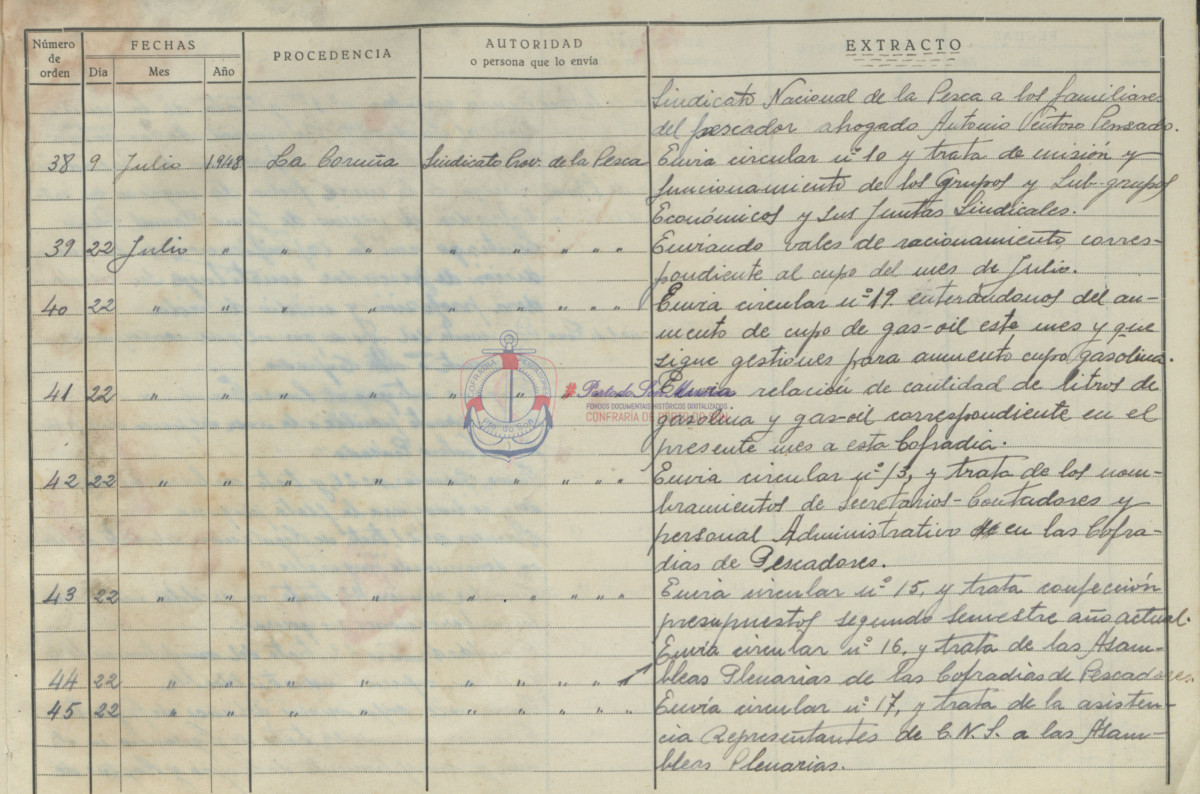 Número de orden FECHAS PROCEDENCIA AUTORIDAD o persona que lo envía EXTRACTO
Día Mes Año
Sindicato Nacional de la Pesca a los familiares
del pescador ahogado Antonio Ventoso Pensado.
38 9 Julio 1.948 La Coruña Sindicato Prov. de la Pesca Envia circular nº 10 y trata de misión y
funcionamiento de los Grupos y Sub-grupos
Económicos y sus Juntas Sindicales.
39 22 Julio " " " " " " " Enviando vales de racionamiento corres-
pondiente al cupo del mes de Julio.
40 22 " " " " " " " " Envia circular nº 19 enterándonos del au-
mento de cupo de gas-oil este mes y que
sigue gestiones para aumento cupo gasolina.
41 22 " " " " " " " Envia relación de cantidad de litros de
gasolina y gas-oil correspondiente en el
presente mes a esta Cofradia.
42 22 " " " " " " " " Envia circular nº 13, y trata de los nom-
bramientos de Secretarios-Contadores y
personal Administrativo en las Cofra-
dias de Pescadores.
43 22 " " " " " . " " " Envia circular nº 15, y trata confección
presupuestos segundo semestre año actual.
Envía circular nº 16, y trata de las Asam-
44 22 " " " " " " " " " bleas Plenarias de las Cofradias de Pescadores.
45 22 " " " " " " " " " Envía circular nº 17, y trata de la asisten-
cia Representantes de C.N.S. a las Asam-
bleas Plenarias.
COFRADIA
Pto. do Son
# Porto do Son
FONDOS DOCUMENTAIS HISTÓRICOS DIGITALIZADOS
CONFRARÍA DE PORTO DO SON